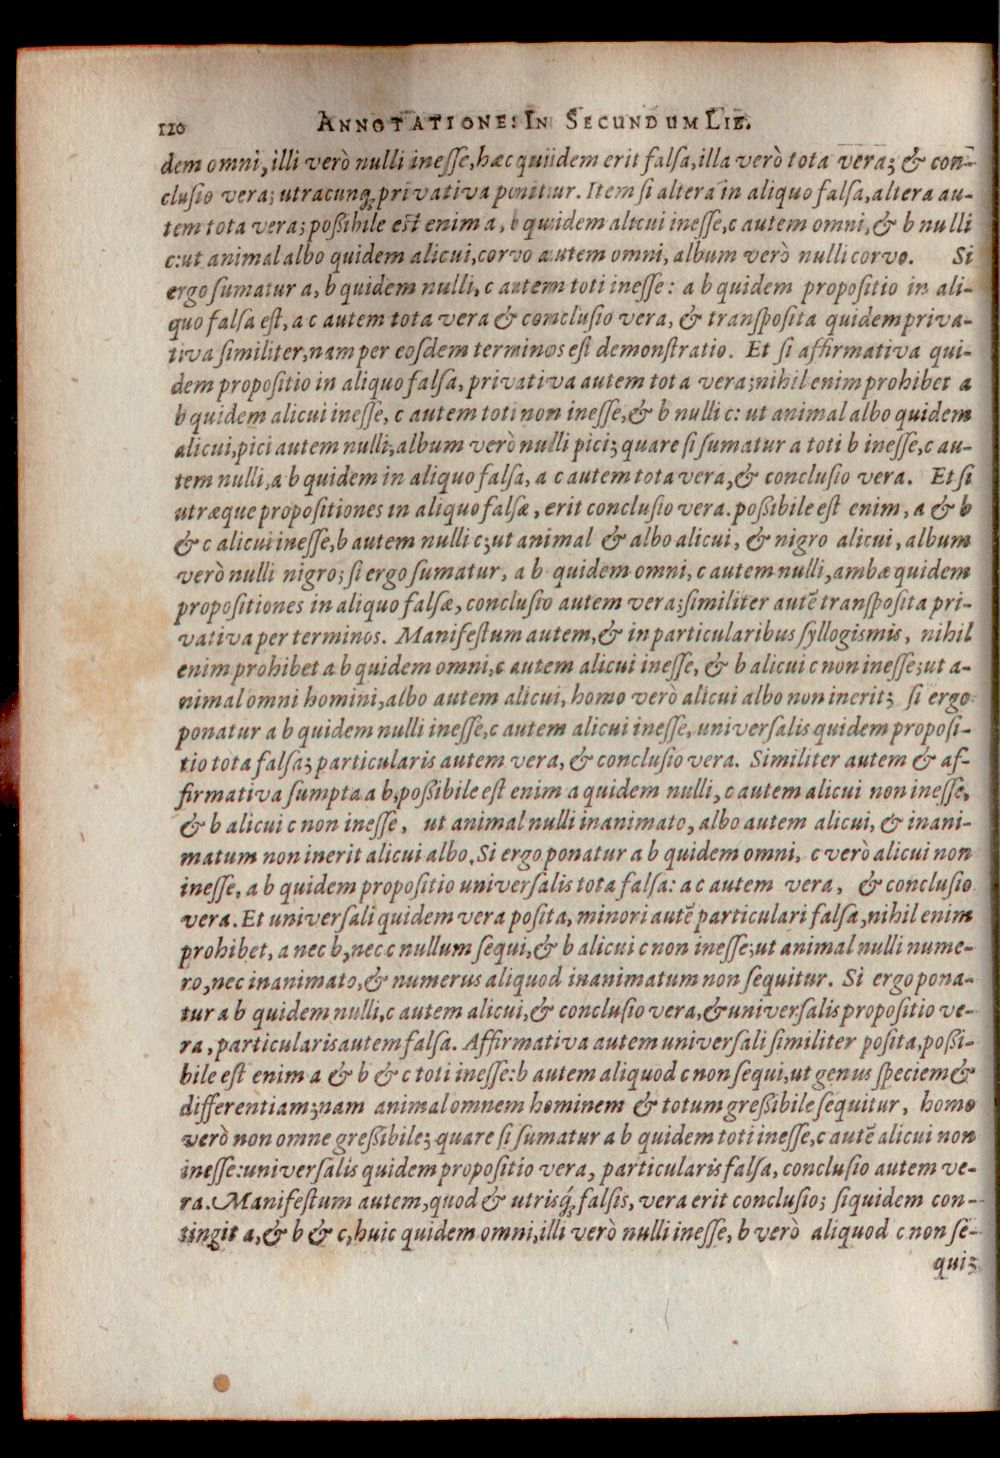 120 ANNOTATIONES IN SECUNDUM LIB.
dem omni, illi verò nulli inesse, hæc quidem erit falsa, illa verò tota vera; & con-
clusio vera; utracunq; privativa ponitur. Item si altera in aliquo falsa, altera au-
tem tota vera; poßibile est enim a, b quidem alicui inesse, c autem omni, & b nulli
c: ut animal albo quidem alicui, corvo autem omni, album verò nulli corvo. Si
ergo sumatur a, b quidem nulli, c autem toti inesse: a b quidem propositio in ali-
quo falsa est, a c autem tota vera & conclusio vera, & transposita quidem priva-
tiva similiter, nam per eosdem terminos est demonstratio. Et si affirmativa qui-
dem propositio in aliquo falsa, privativa autem tota vera; nihil enim prohibet a
b quidem alicui inesse, c autem toti non inesse, & b nulli c: ut animal albo quidem
alicui, pici autem nulli, album verò nulli pici; quare si sumatur a toti b inesse, c au-
tem nulli, a b quidem in aliquo falsa, a c autem tota vera, & conclusio vera. Et si
utræque propositiones in aliquo falsæ, erit conclusio vera. poßibile est enim, a & b
& c alicui inesse, b autem nulli c; ut animal & albo alicui, & nigro alicui, album
verò nulli nigro; si ergo sumatur, a b quidem omni, c autem nulli, ambæ quidem
propositiones in aliquo falsæ, conclusio autem vera; similiter autē transposita pri-
vativa per terminos. Manifestum autem, & in particularibus syllogismis, nihil
enim prohibet a b quidem omni, c autem alicui inesse, & b alicui c non inesse; ut a-
nimal omni homini, albo autem alicui, homo verò alicui albo non inerit; si ergo
ponatur a b quidem nulli inesse, c autem alicui inesse, universalis quidem proposi-
tio tota falsa; particularis autem vera, & conclusio vera. Similiter autem & af-
firmativa sumpta a b, poßibile est enim a quidem nulli, c autem alicui non inesse,
& b alicui c non inesse, ut animal nulli inanimato, albo autem alicui, & inani-
matum non inerit alicui albo. Si ergo ponatur a b quidem omni, c verò alicui non
inesse, a b quidem propositio universalis tota falsa: a c autem vera, & conclusio
vera. Et universali quidem vera posita, minori autē particulari falsa, nihil enim
prohibet, a nec b, nec c nullum sequi, & b alicui c non inesse; ut animal nulli nume-
ro, nec inanimato, & numerus aliquod inanimatum non sequitur. Si ergo pona-
tur a b quidem nulli, c autem alicui, & conclusio vera, & universalis propositio ve-
ra, particularis autem falsa. Affirmativa autem universali similiter posita, poßi-
bile est enim a & b & c toti inesse: b autem aliquod c non sequi, ut genus speciem &
differentiam; nam animal omnem hominem & totum greßibile sequitur, homo
verò non omne greßibile; quare si sumatur a b quidem toti inesse, c autē alicui non
inesse: universalis quidem propositio vera, particularis falsa, conclusio autem ve-
ra. Manifestum autem, quod & utrisq; falsis, vera erit conclusio; siquidem con-
tingit a, & b & c, huic quidem omni, illi verò nulli inesse, b verò aliquod c non se-
qui;